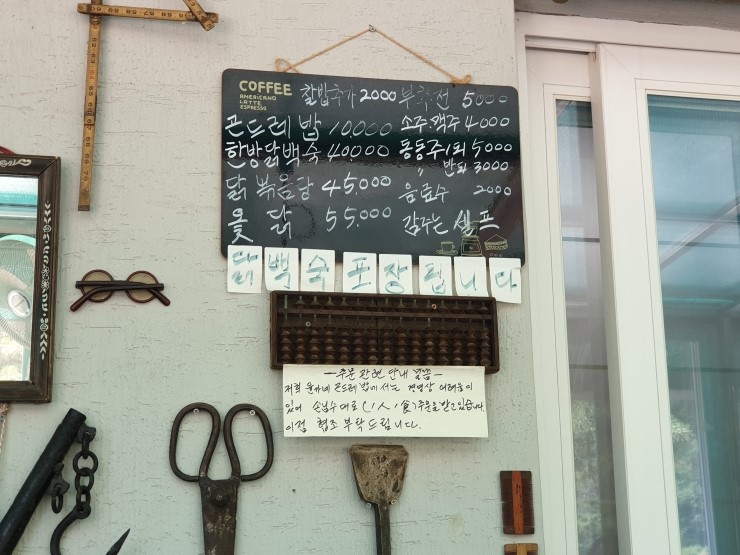 COFFEE
AMERICANO
LATTE
ESPRESSO
찰밥추가 2000
곤드레밥 10,000
한방닭백숙 40,000
닭볶음탕 45.000
옻 닭 55.000
부추전 5000
소주.맥주 4000
동동주1되 5000
〃 반되 3000
음료수 2000
감주는 셀프
닭백숙포장됩니다
-주문관련 안내 말씀-
저희 곤드레밥에서는 경영상 어려움이
있어 손님수대로 (1人,1食)주문을 받고있습니다.
이점 협조 부탁드립니다.